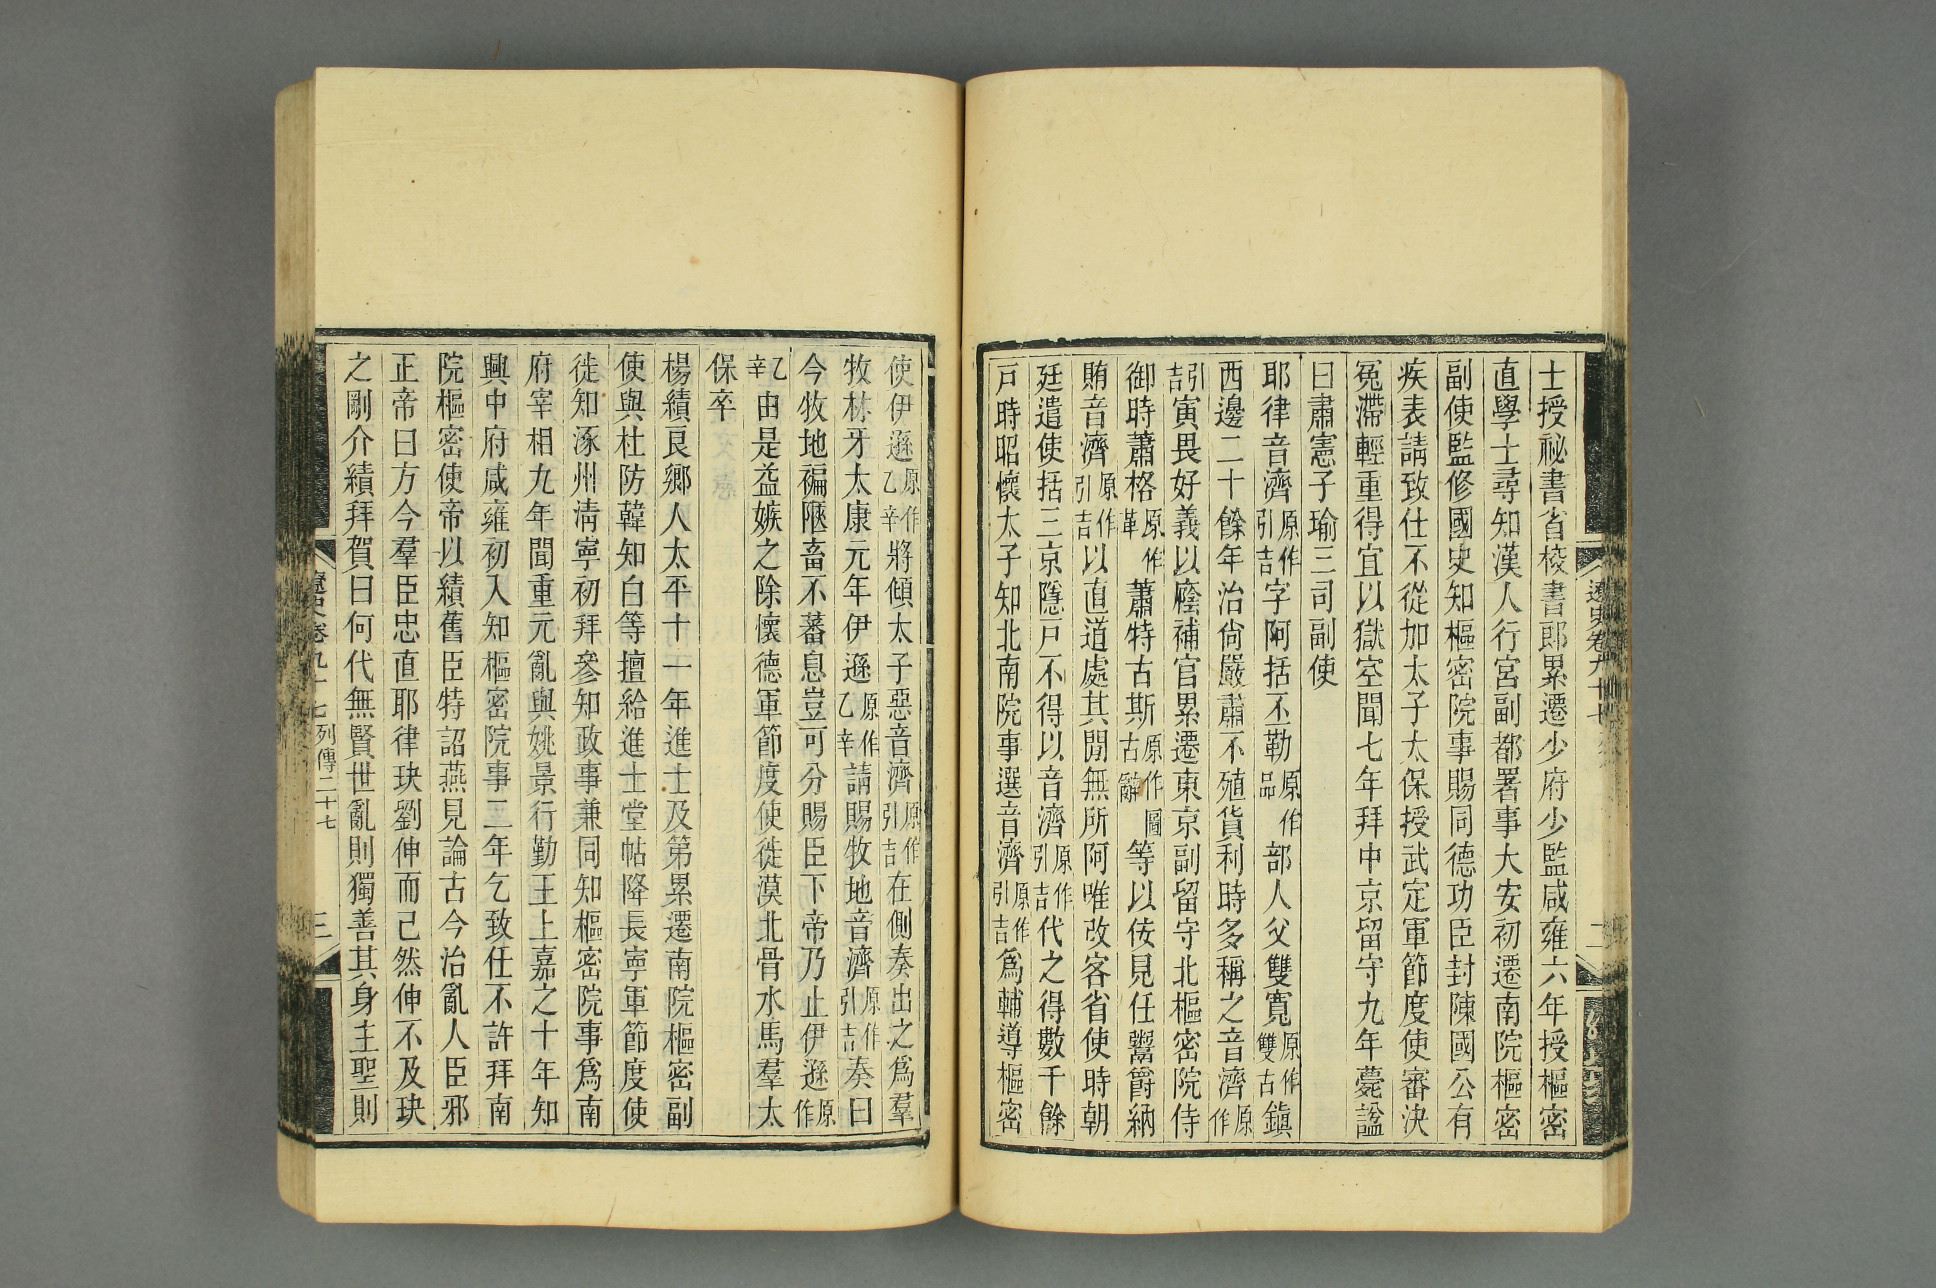 士授祕書省校書郎累遷少府少監咸雍六年授樞密
直學士尋知漢人行宮副都署事大安初遷南院樞密
副使監修國史知樞密院事賜同德功臣封陳國公有
疾表請致仕不從加太子太保授武定軍節度使審決
冤滯輕重得宜以獄空聞七年拜中京留守九年薨諡
曰肅憲子瑜三司副使
耶律音濟原作引吉字阿括丕勒原作品部人父雙寬原作雙古鎮
西邊二十餘年治尙嚴肅不殖貨利時多稱之音濟原作
引吉寅畏好義以廕補官累遷東京副留守北樞密院侍
御時蕭格原作革蕭特古斯原作圖古辭等以佞見任鬻爵納
賄音濟原作引吉以直道處其閒無所阿唯改客省使時朝
廷遣使括三京隱戸不得以音濟原作引吉代之得數千餘
戸時昭懷太子知北南院事選音濟原作引吉爲輔導樞密
遼史卷九十七
二
使伊遜原作乙辛將傾太子惡音濟原作引吉在側奏出之爲羣
牧林牙太康元年伊遜原作乙辛請賜牧地音濟原作引吉奏曰
今牧地褊陿畜不蕃息豈可分賜臣下帝乃止伊遜原作
乙辛由是益嫉之除懷德軍節度使徙漠北骨水馬羣太
保卒
楊績良鄉人太平十一年進士及第累遷南院樞密副
使與杜防韓知白等擅給進士堂帖降長寧軍節度使
徙知涿州淸寧初拜參知政事兼同知樞密院事爲南
府宰相九年聞重元亂與姚景行勤王上嘉之十年知
興中府咸雍初入知樞密院事二年乞致仕不許拜南
院樞密使帝以績舊臣特詔燕見論古今治亂人臣邪
正帝曰方今羣臣忠直耶律玦劉伸而己然伸不及玦
之剛介績拜賀曰何代無賢世亂則獨善其身主聖則
遼史卷九十七列傳二十七
三